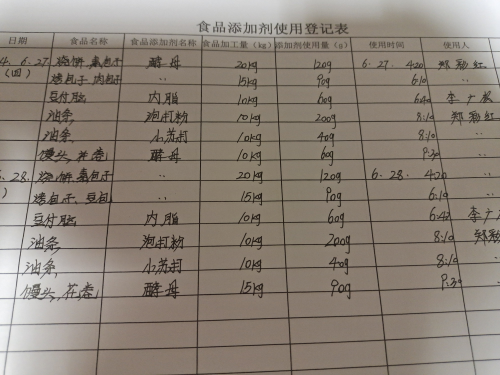 食品添加剂使用登记表
日期 食品名称 食品添加剂名称 食品加工量(kg) 添加剂使用量(g) 使用时间 使用人
4.6.27. 烧饼 包子 酵母 20kg 120g 6.27. 420 郑 红
(四) 包子 肉包子 〃 15kg 90g 6:10 〃
豆付脑 内脂 10kg 60g 640 李广
油条 泡打粉 10kg 200g 8:10 郑 红
油条 小苏打 10kg 40g 8:10 〃
馒头 花卷 酵母 10kg 60g 9:30 〃
6.28. 烧饼 包子 〃 20kg 120g 6.28. 420 〃
包子、豆包 〃 15kg 90g 6:10 〃
豆付脑 内脂 10kg 60g 6:40 李广
油条 泡打粉 10kg 200g 8:10 郑
油条 小苏打 10kg 40g 8:10 〃
馒头,花卷 酵母 15kg 90g 9:30 〃